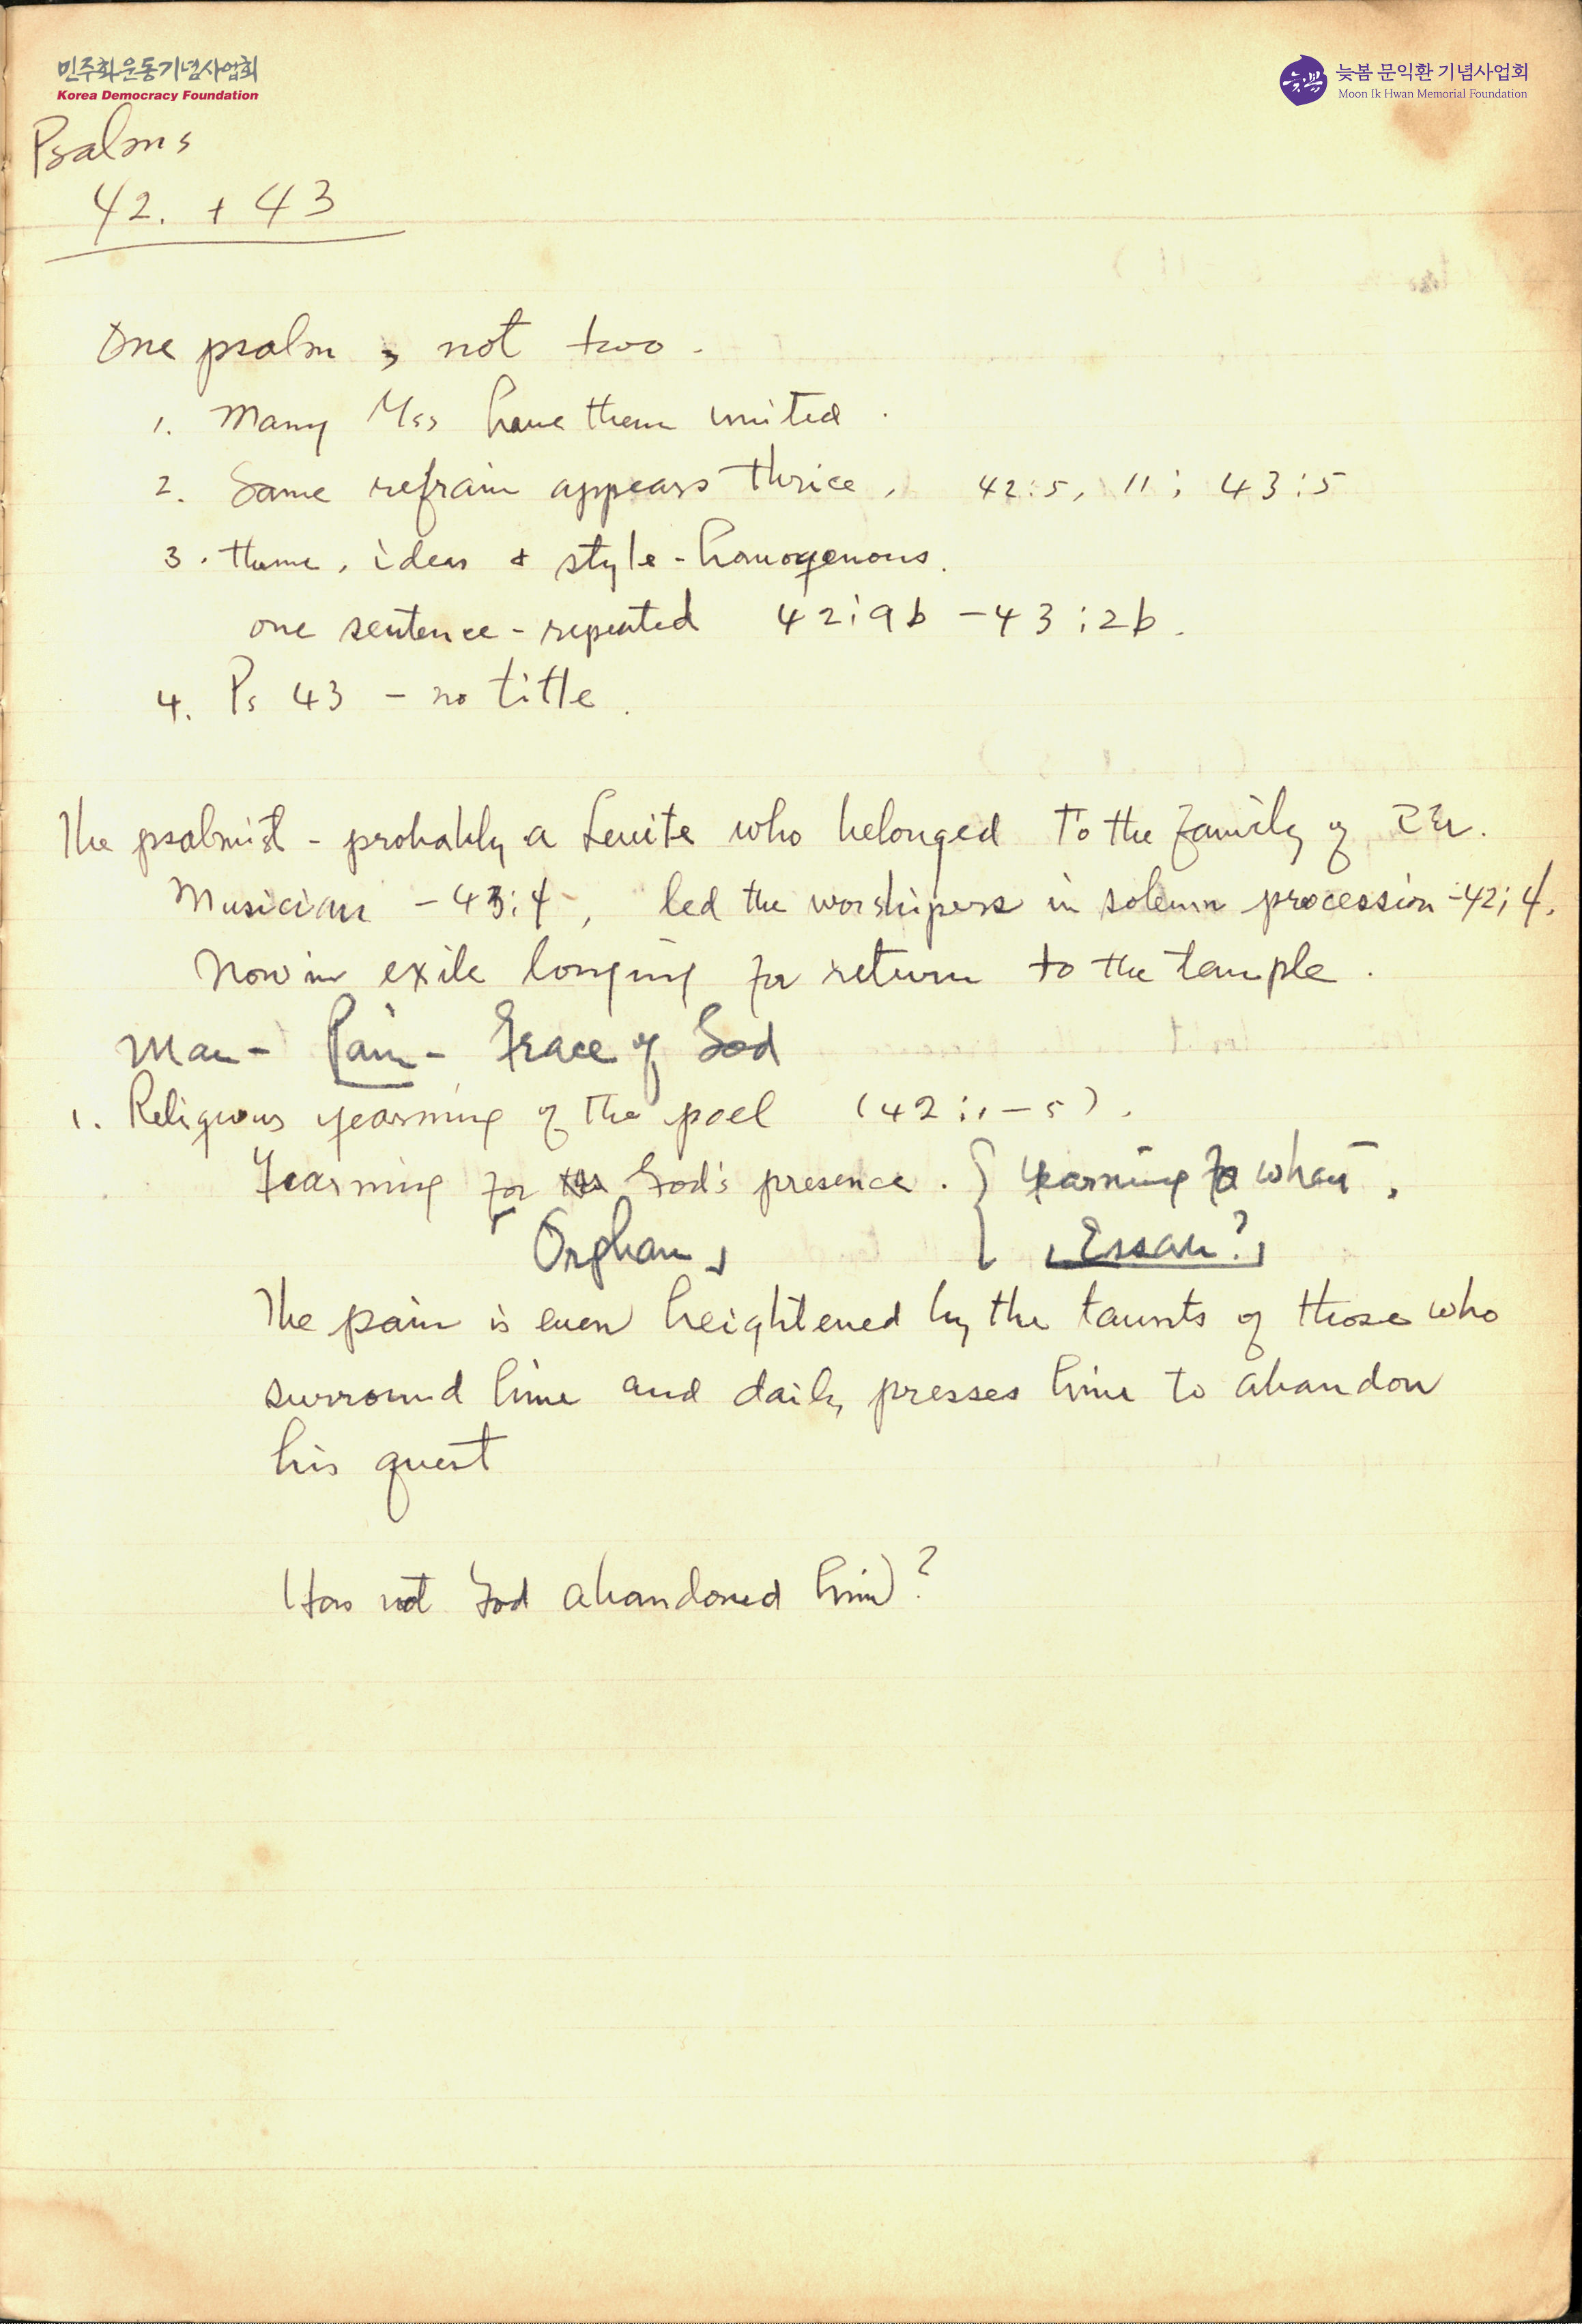 민주화운동기념사업회
Korea Democracy Foundation
늦봄
늦봄 문익환 기념사업회
Moon Ik Hwan Memorial Foundation
Psalms
42. + 43
One psalm, not two.
1. Many Mss have them united.
2. Same refrain appears thrice, 42:5, 11; 43:5
3. theme, ideas + style - homogenous.
one sentence - repeated 42:9b - 43:2b.
4. Ps 43 - no title.
The psalmist - probably a Levite who belonged to the family of 고라.
Musician - 43:4, led the worshipers in solemn procession - 42:4.
Now in exile longing for return to the temple.
Man - Pain - Grace of God
1. Religious yearning of the poet (42:1-5).
Yearning for God's presence. { Yearning for what,
「Orphan」 「Essau?」
The pain is even heightened by the taunts of those who
surround him and daily presses him to abandon
his quest
Has not God abandoned him?